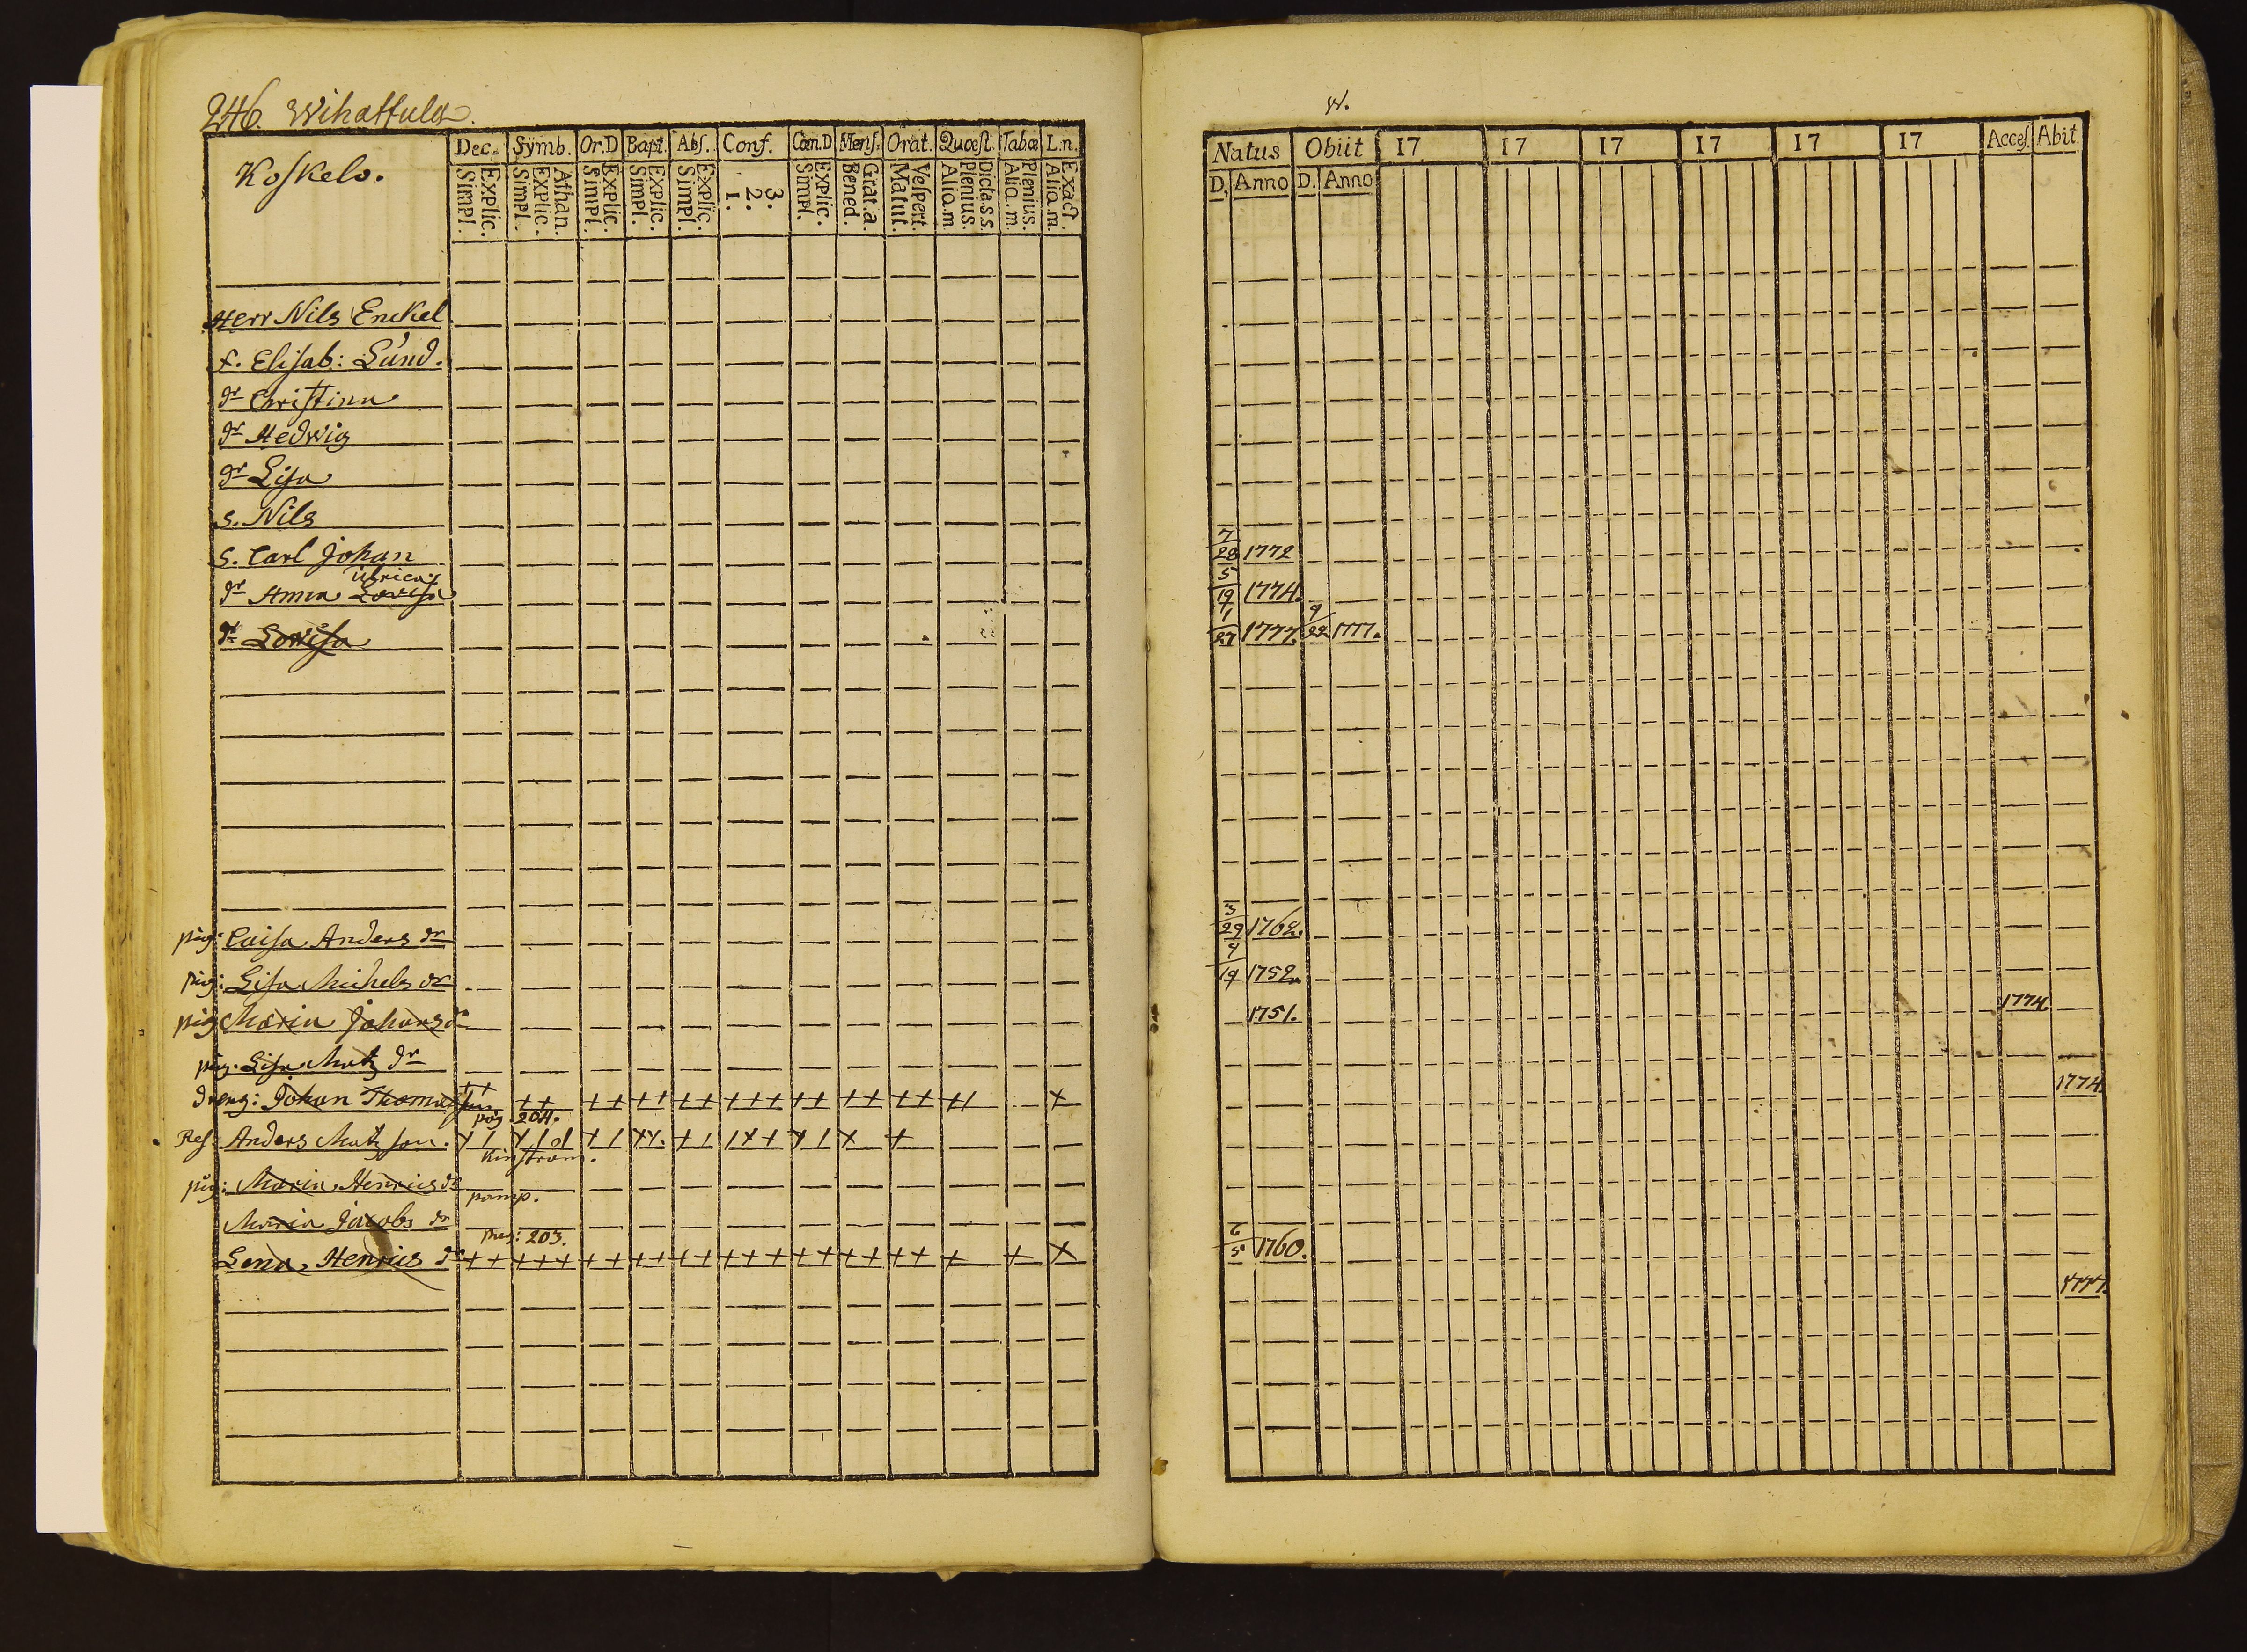 246. Wihattula.
Koskelo.
Dec. Symb. Or.D Bapt. Abs. Conf. Cœn.D Mens. Orat. Quœst. Tabœ L.n.
Simpl. Explic. Simpl. Explic. Athan. Simpl. Explic. Simpl. Explic. Simpl. Explic. 1. 2. 3. Simpl. Explic. Bened. Grat.a. Matut. Vespert. Aliq.m Plenius. Dicta.s.s. Aliq.m. Plenius. Aliq.m. Exact.
Herr Nils Enckel
f. Elisab: Lund.
dr Christina
dr Hedwig
dr Lisa
s. Nils
s. Carl Johan
Ulrica
dr Anna Lovisa
dr Lovisa
pig: Caisa Anders dr
pig: Lisa Michels dr
pig Maria Johans dr
pig. Lisa Matz dr
++
dreng: Johan Thomasson ++ ++ ++ ++ +++ ++ ++ ++ +
pag. 204.
Anders Matzson.
pig: Maria Henrics dr
pamp.
Maria Jacobs dr
pag: 203.
Lena Henrics dr ++ +++ ++ ++ ++ +++ ++ ++ ++ + + +
W.
Natus Obiit 17 17 17 17 17 17 Acces. Abit
D. Anno D. Anno
7/28 1772
5/19 1774.
1/27 1777. 9/22 1777.
3/29 1762.
9/19 1752.
1751. 1774.
1774.
6/5 1760.
1777.